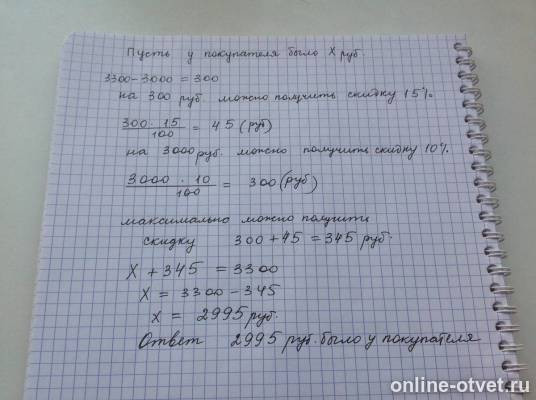 Пусть у покупателя было X руб.
3300-3000 = 300
на 300 руб. можно получить скидку 15%.
300 · 15 / 100 = 45 (руб)
на 3000 руб. можно получить скидку 10%.
3000 · 10 / 100 = 300 (руб)
максимально можно получить
скидку 300 + 45 = 345 руб.
X + 345 = 3300
X = 3300 - 345
x = 2995 руб.
Ответ 2995 руб. было у покупателя
online-otvet.ru